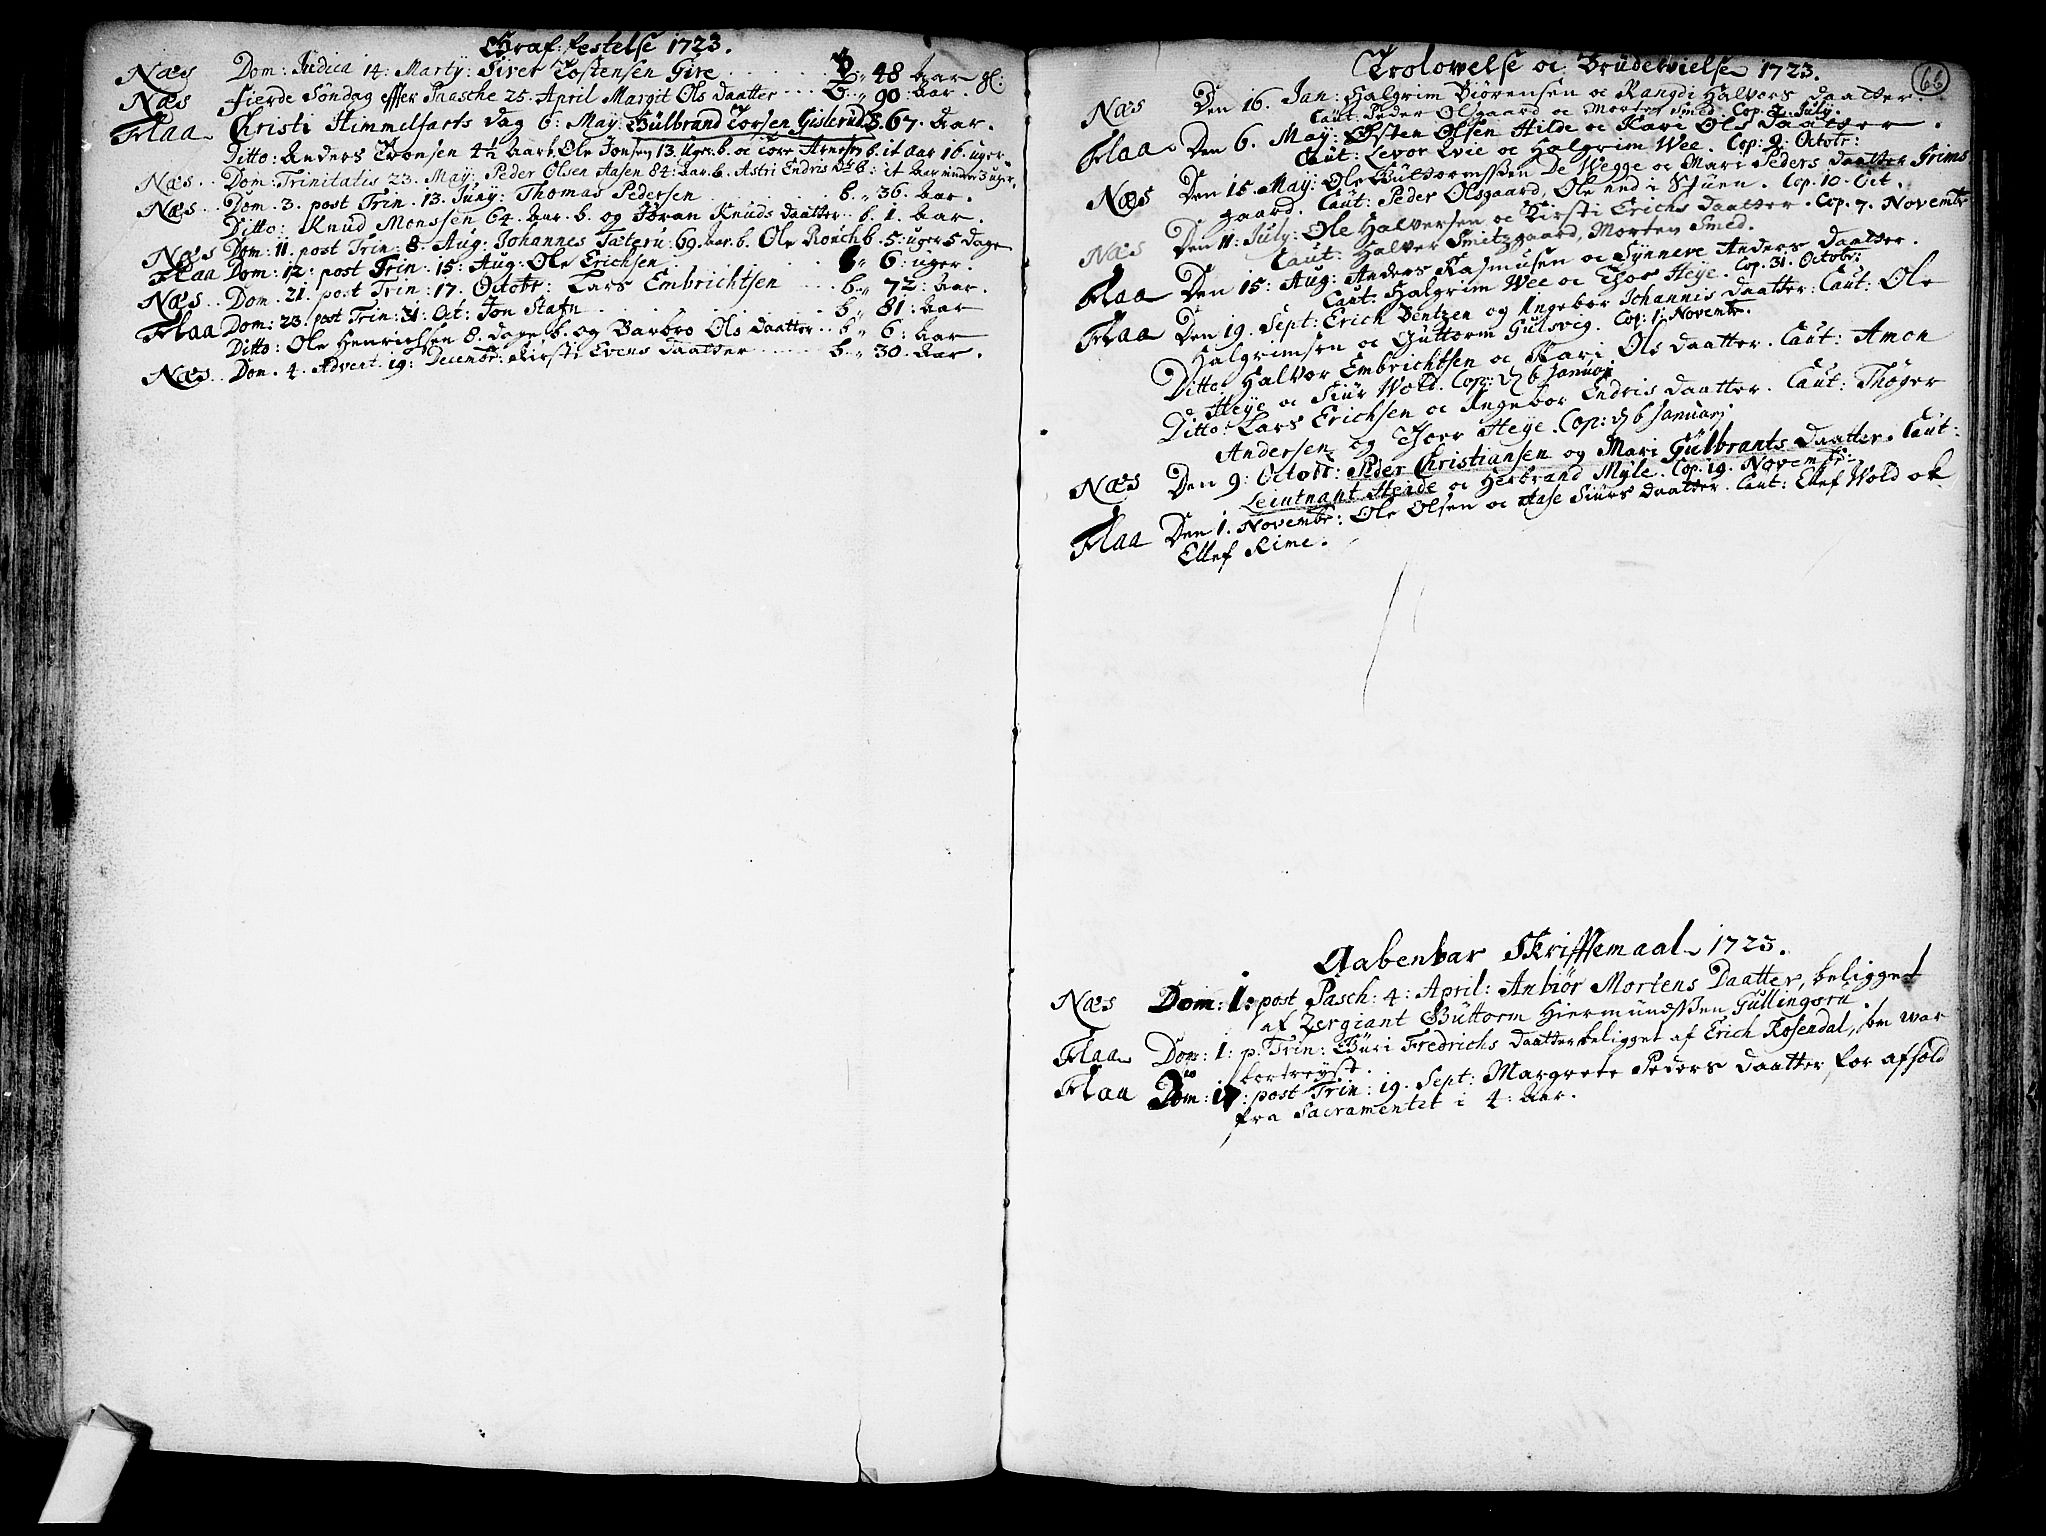 Graf: festelse 1723.
Næs Dom: Judica 14: Marty: Siver Tostensen Gire b. 48 Aar gl:
Næs fierde Søndag effter Paasche 25. April Margit Ols daatter b. 90: Aar.
Flaa Christi Himmelfarts dag 6: May: Gulbrand Torsen Gislerud b. 67. Aar.
Ditto: Anders Tronsen 4½ Aar b. Ole Jonsen 13. Uger. b. oc Tore Arnesen b. it Aar 16. uger.
Næs Dom: Trinitatis 23. May: Peder Olsen Aasen 84: Aar. b. Astri Endris D: b: it Aar mindre 3 uger.
Næs Dom. 3. post Trin. 13. Juny: Thomas Pedersen b. 36. Aar.
Ditto: Knud Monssen 64. Aar. b. og Jøran Knuds daatter b. 1. Aar.
Næs Dom: 11. post Trin: 8. Aug: Johannes Tateru: 69. Aar. b. Ole Rotich b. 5. uger 5 dage
Flaa Dom: 12: post Trin: 15: Aug: Ole Erichsen b. 6: uger.
Næs Dom. 21. post Trin: 17. Octobr: Lars Embrichtsen b. 72: Aar.
Flaa Dom: 23. post Trin: 31: Oct: Jon Stafn b. 81: Aar
Ditto: Ole Henrichsen 8. dage b. og Barbro Ols daatter b. 6: Aar
Næs Dom. 4. Advent. 19: Decembr: Kirsti Evens daatter b. 30. Aar.
66
Trolowelse oc Brudewielse 1723.
Næs Den 16. Jan: Halgrim Biørensen oc Rangdi Halvors daatter.
Caut: Peder Olsgaard oc Morten Smed. Cop. 2. July.
Flaa Den 6. May: Østen Olsen Hilde oc Kari Ols daatter.
Caut: Levor Lvie oc Halgrim Wee. Cop: 9. Octobr:
Næs Den 15. May: Ole Guttormssen De Wegge oc Mari Peders daatter Grims
gaard. Caut: Peder Olsgaard, Ole end i Stuen. Cop. 10. Oct.
Næs Den 11: July: Ole Halversen oc Kirsti Erichs daatter. Cop. 7. Novembr
Caut: Halver Smitzgaard, Morten Smed.
Flaa Den 15: Aug: Anders Rasmusen oc Synneve Anders daatter.
Caut: Halgrim Wee oc Thor Heye. Cop. 31. Octobr:
Flaa Den 19. Sept: Erich Bentzen og Ingebor Johannis daatter: Caut: Ole
Halgrimsen oc Guttorm Gulsveg. Cop: 1. Novembr.
Ditto Halvor Embrichtsen oc Kari Ols daatter. Caut: Amon
Heye oc Siur Wold. Cop: d 6 Januarj
Ditto: Lars Erichsen oc Ingebor Endris daatter. Caut: Thøger
Andersen og Thoer Heye. Cop: d 6 Januarj
Næs Den 9: Octobr: Peder Christiansen og Mari Gulbrants daatter. Caut:
Leiutnant Heide oc Herbrand Myle. Cop. 19. Novembr:
Flaa Den 1. Novembr: Ole Olsen oc Aase Siurs daatter. Caut: Ellef Wold ok
Ellef Rime.
Aabenbar Skrifftemaal 1723.
Næs Dom: 1: post Pasch: 4: April: Anbiør Mortens Daatter, beligget
af Zergiant Guttorm Hiermundssen Gullingsru.
Flaa Dom: 1: p. Trin: Guri Fredrichs daatter beligget af Erich Rosendal, som war
bortreyst.
Flaa Dom: 17: post Trin: 19. Sept: Margrete Peders daatter for afhold
fra Sacramentet i 4: Aar.